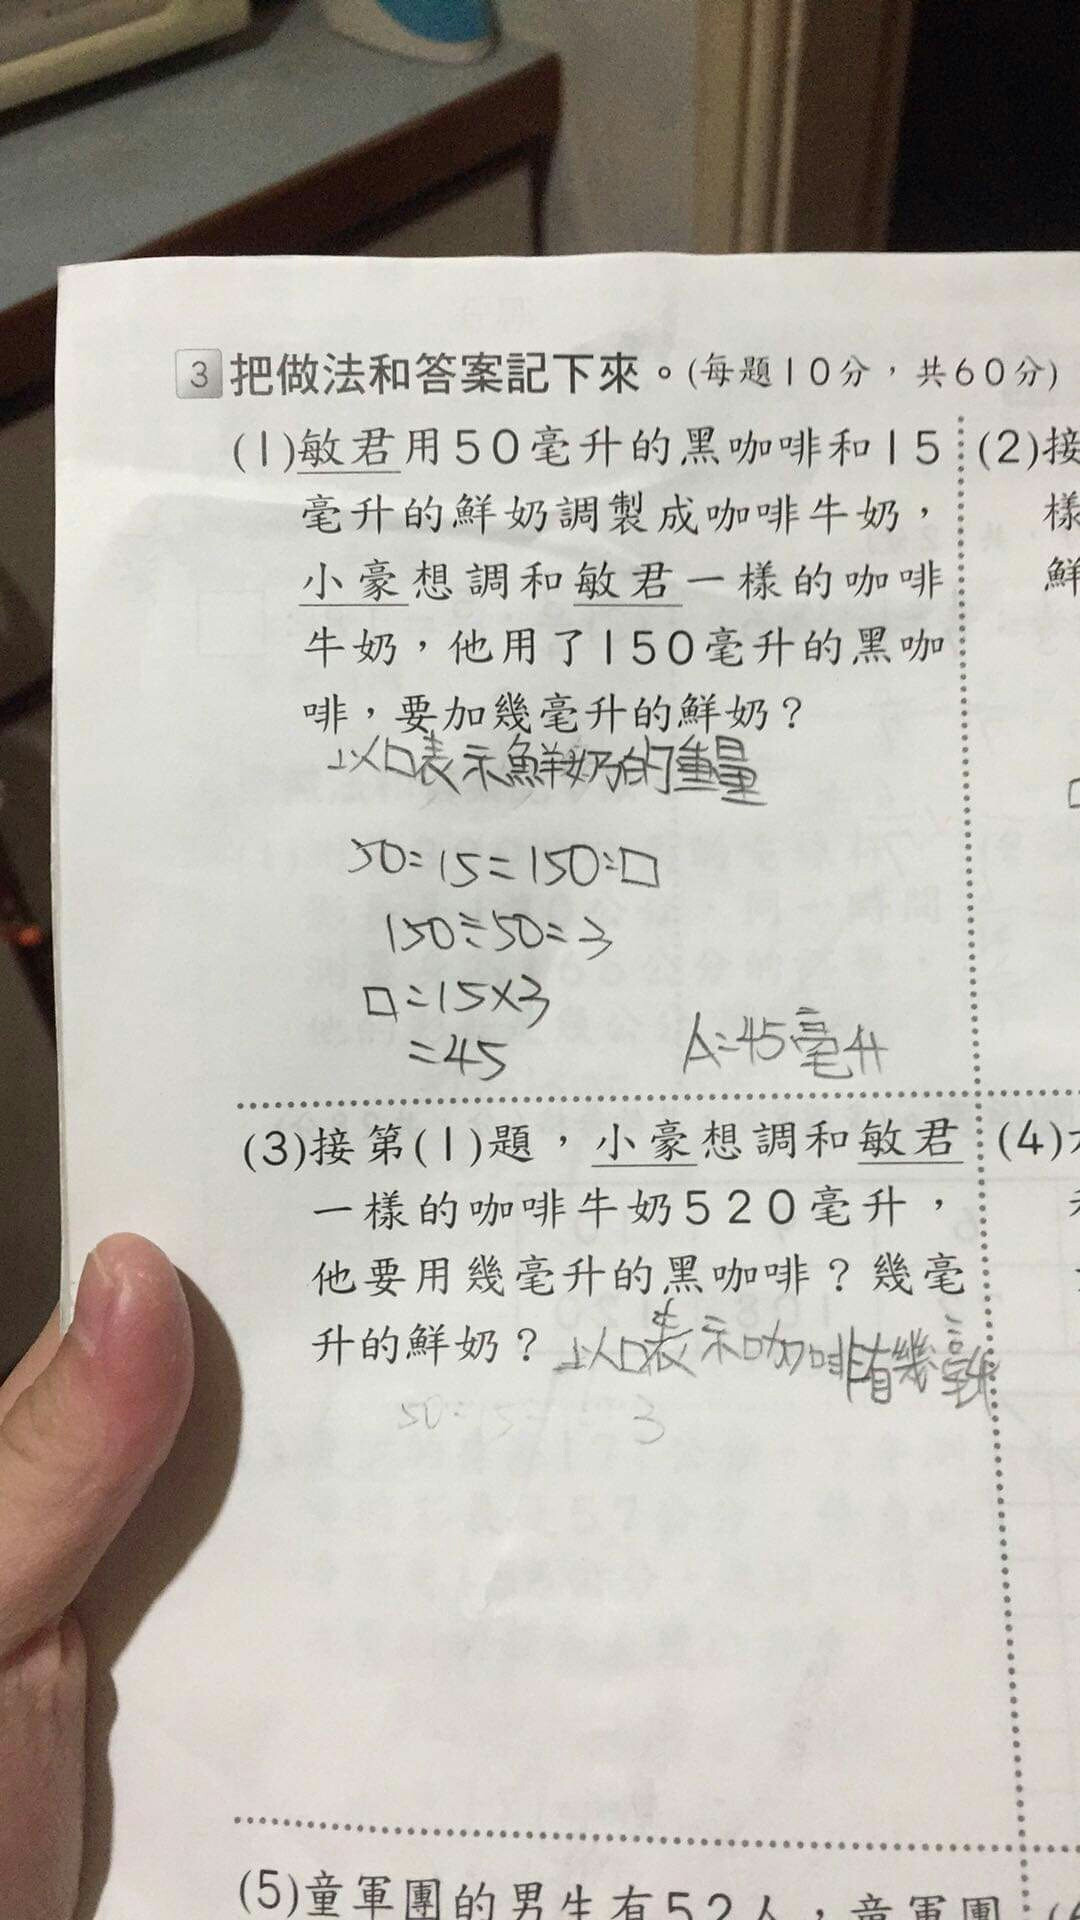 3 把做法和答案記下來。(每題10分，共60分)
(1)敏君用50毫升的黑咖啡和15
毫升的鮮奶調製成咖啡牛奶，
小豪想調和敏君一樣的咖啡
牛奶，他用了150毫升的黑咖
啡，要加幾毫升的鮮奶？
以口表示鮮奶的重量
50:15=150:□
150÷50=3
□=15×3
=45
A:45毫升
(2)接
樣
鮮
(3)接第(1)題，小豪想調和敏君
一樣的咖啡牛奶520毫升，
他要用幾毫升的黑咖啡？幾毫
升的鮮奶？
以口表示咖啡有幾毫升
50:15=
3
(4)
(5)童軍團的男生有52人，童軍團